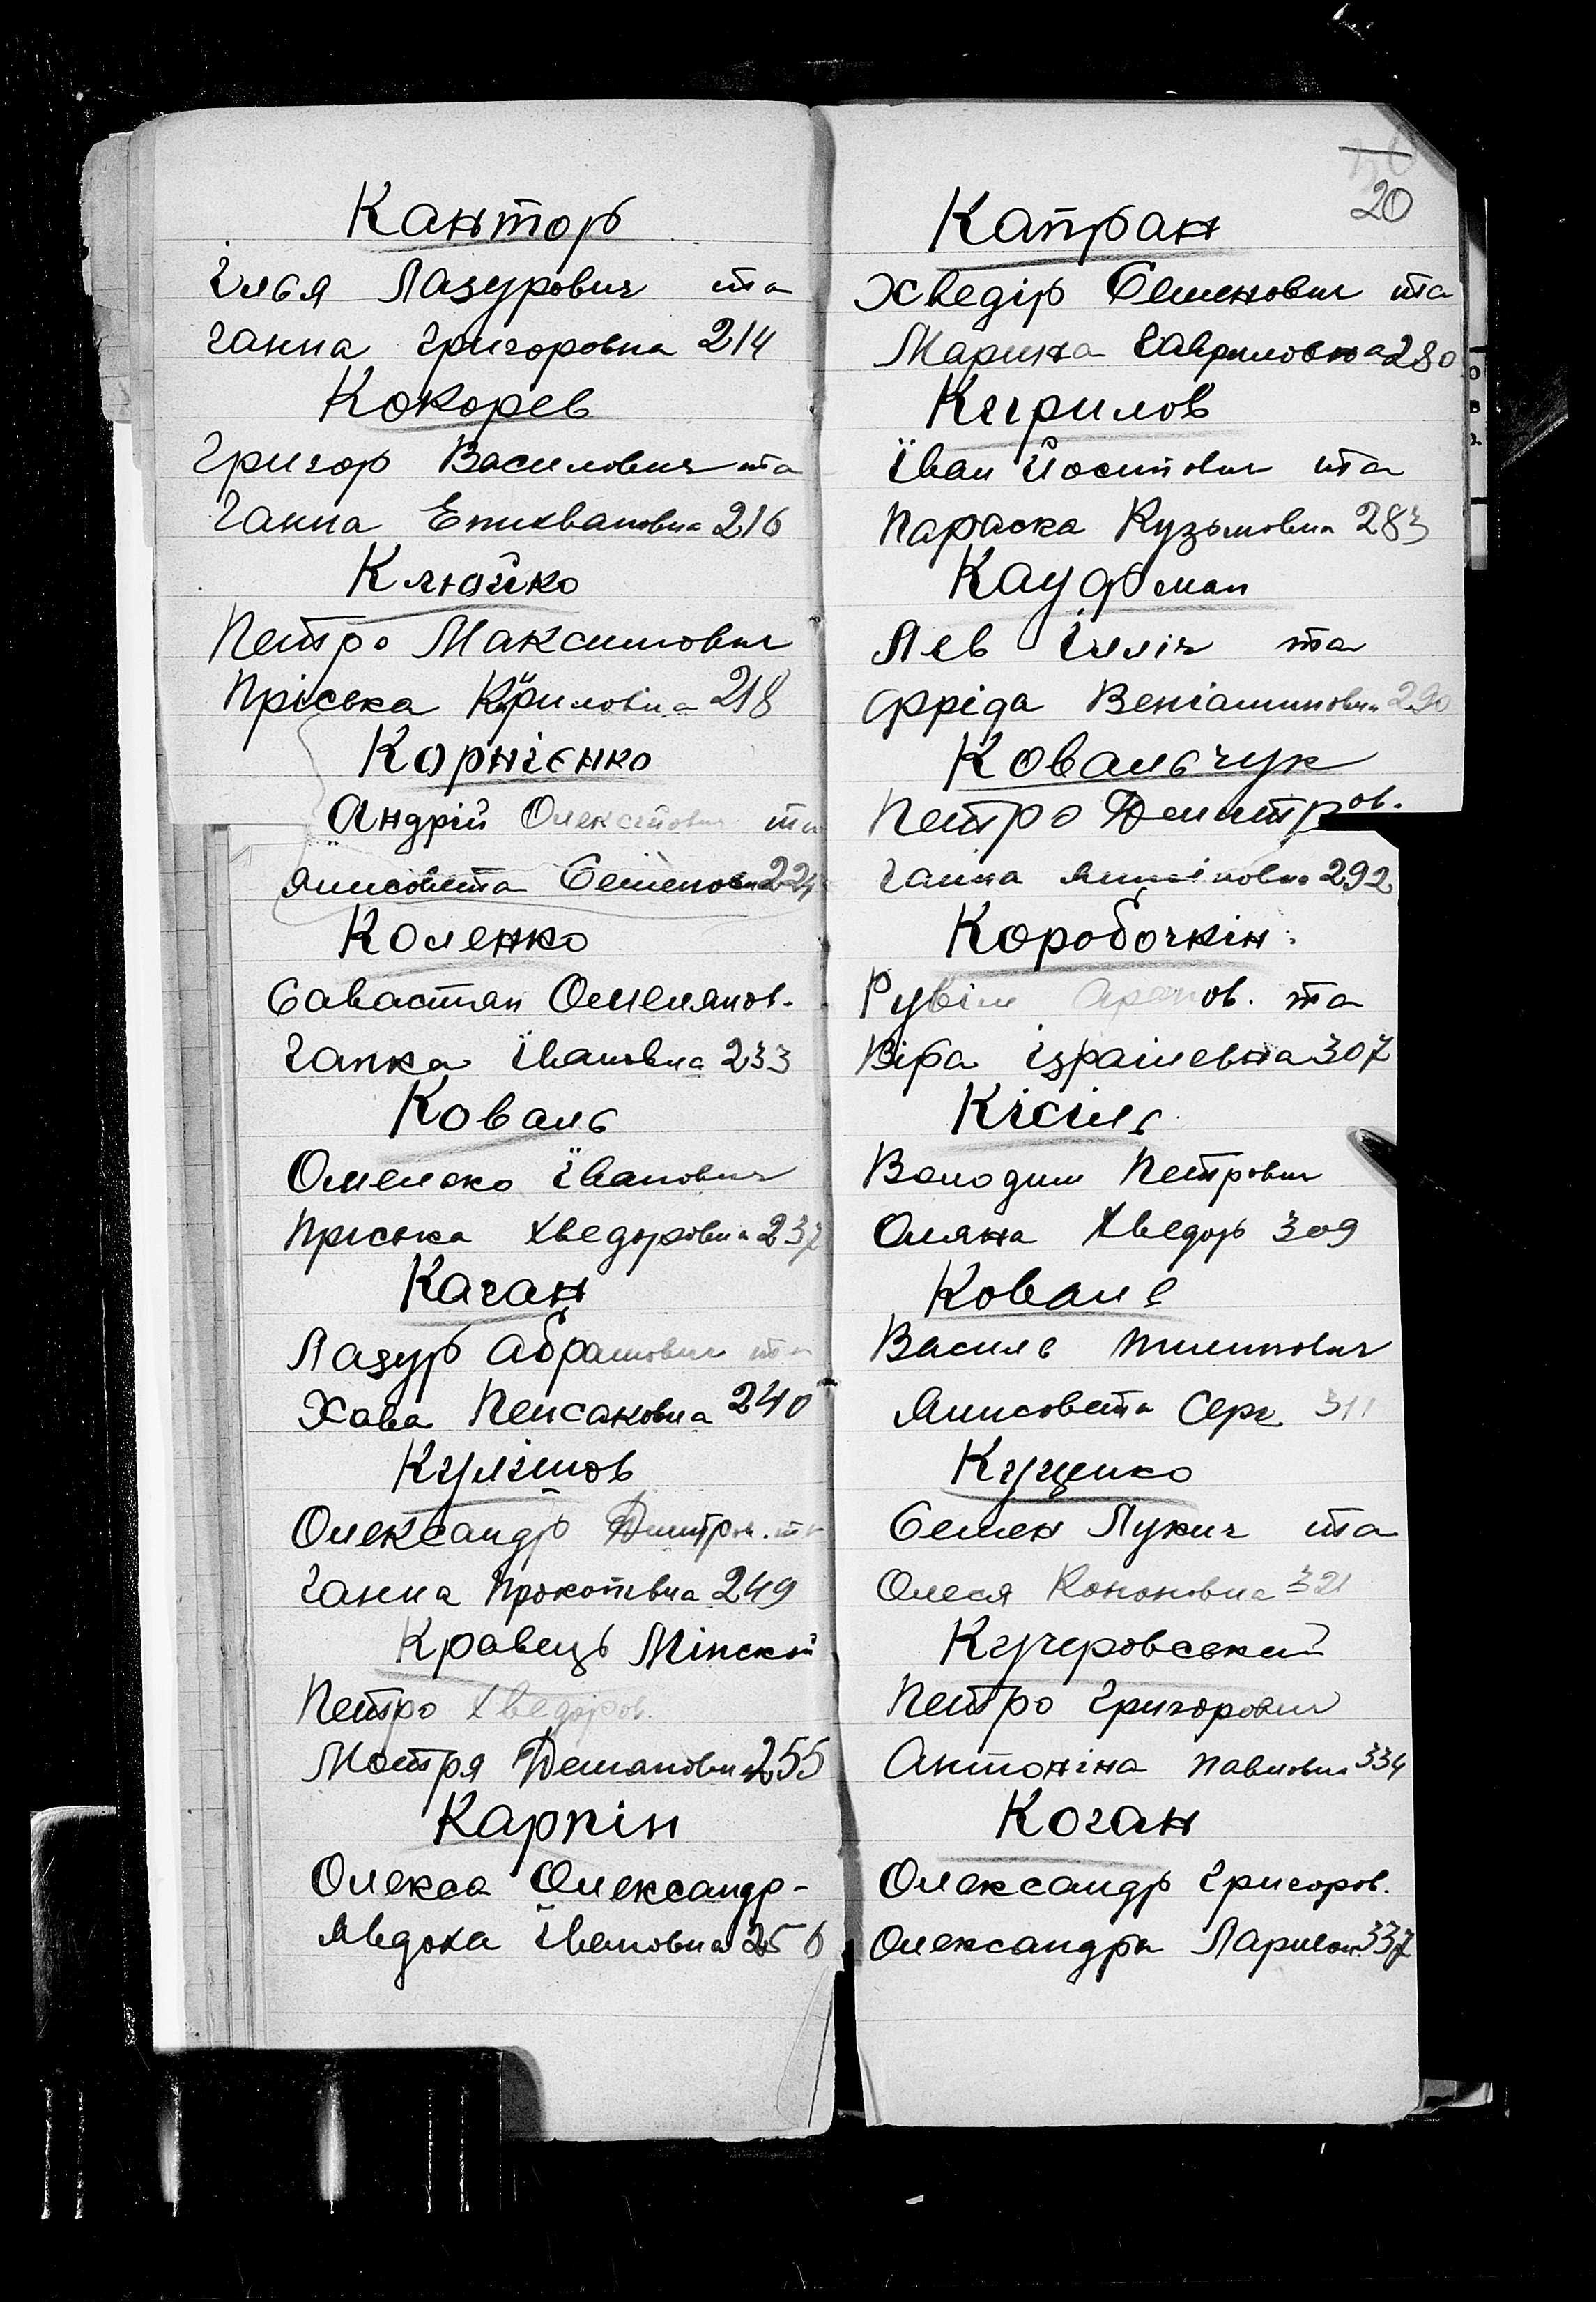 Кантор
Ілья Лазурович та
Ганна Григоровна 214
Кокорев
Григор Василович та
Ганна Епихвановна 216
Клюйко
Петро Максимович
Пріська Кіриловна 218
Корнієнко
Андрій Олексійович та
Ялисовета Семеновна 224
Коленко
Савастян Омелянов.
Гапка Івановна 233
Коваль
Омелько Іванович
Пріська Хведоровна 237
Каган
Лазур Абрамович та
Хава Пейсаковна 240
Кулішов
Олександр Дмитров. та
Ганна Прокопівна 249
Кравець Мінский
Петро Хведоров.
Мотря Демановна 255
Карпін
Олекса Олександр-
Явдоха Івановна 256
20
Капран
Хведір Семенович та
Марина Гавриловна 280
Кирилов
Іван Йосипович та
Параска Кузьмовна 283
Кауфман
Лев Ілліч та
Фріда Веніаминовна 290
Ковальчук
Петро Демитров.
Ганна 292
Коробочкін
Рувім Аронов. та
Віра Ізраілевна 307
Кісіль
Володим Петрович
Оляна Хведор 309
Коваль
Василь Пилипович
Ялисовета Серг 311
Куценко
Семен Лукич та
Олеся Кононовна 321
Кучеровський
Петро Григорович
Антоніна Павловна 334
Коган
Олександр Григоров.
Олександра Ларивон 337